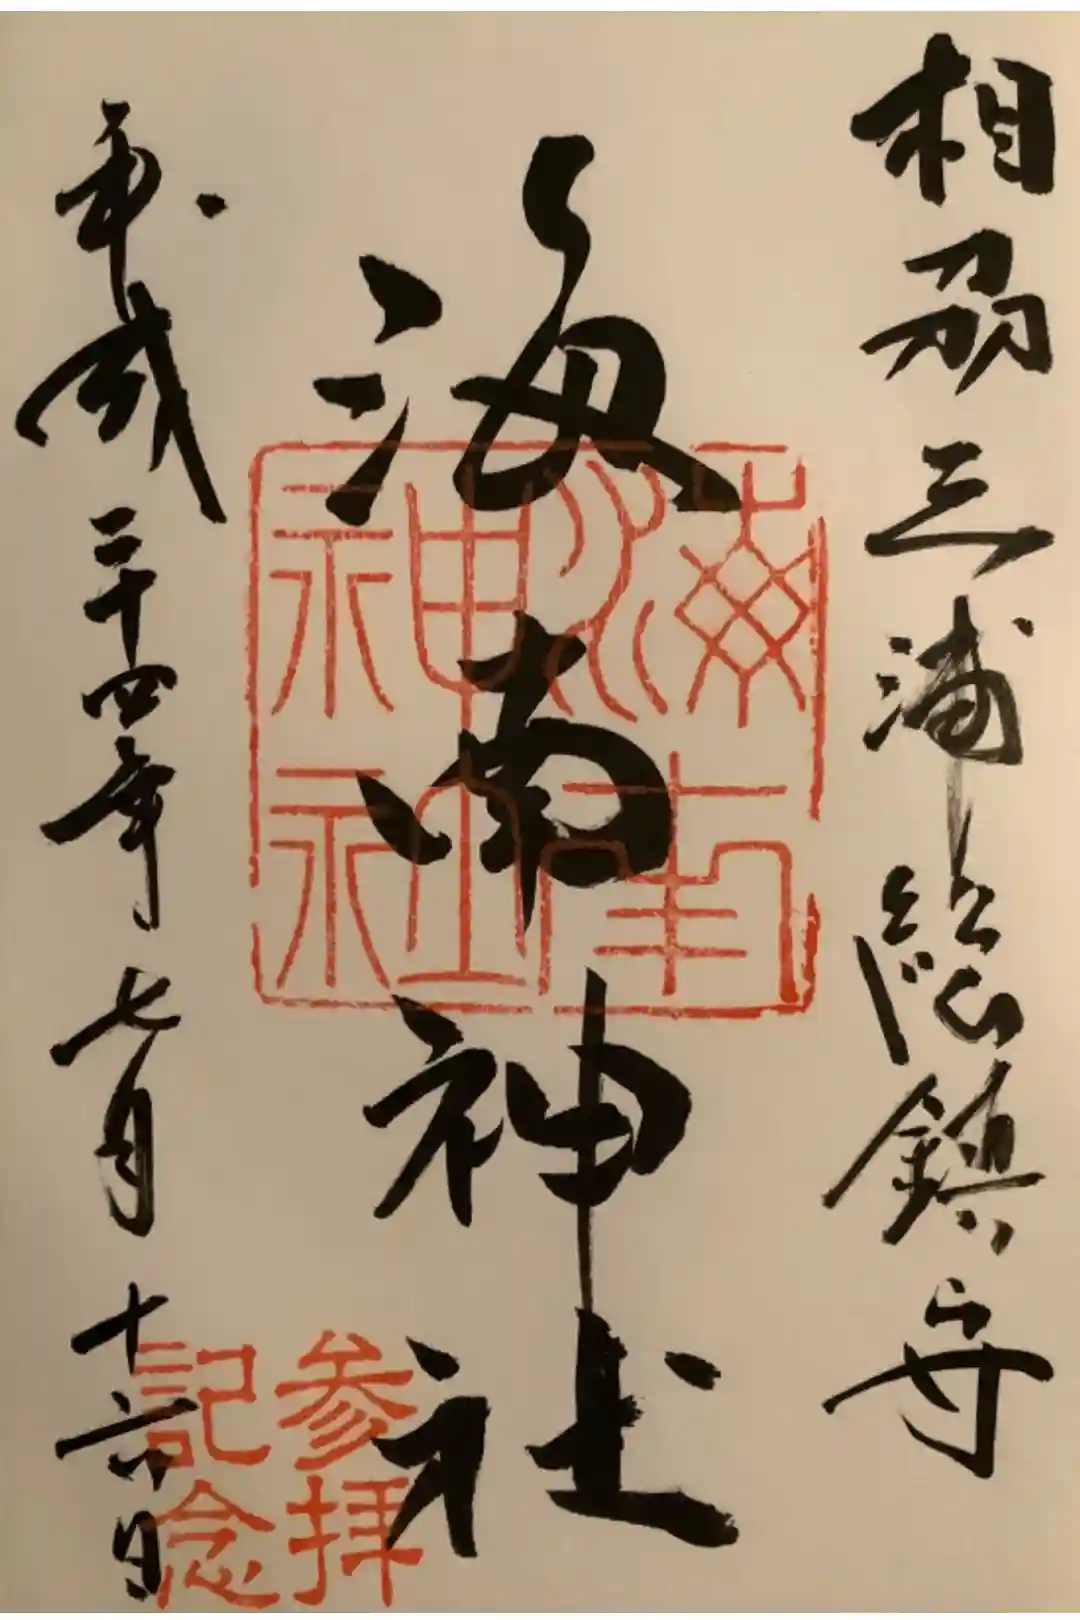 相刕三浦総鎮守
海南神社
平成二十四年七月十六日
海南神社
参拝記念